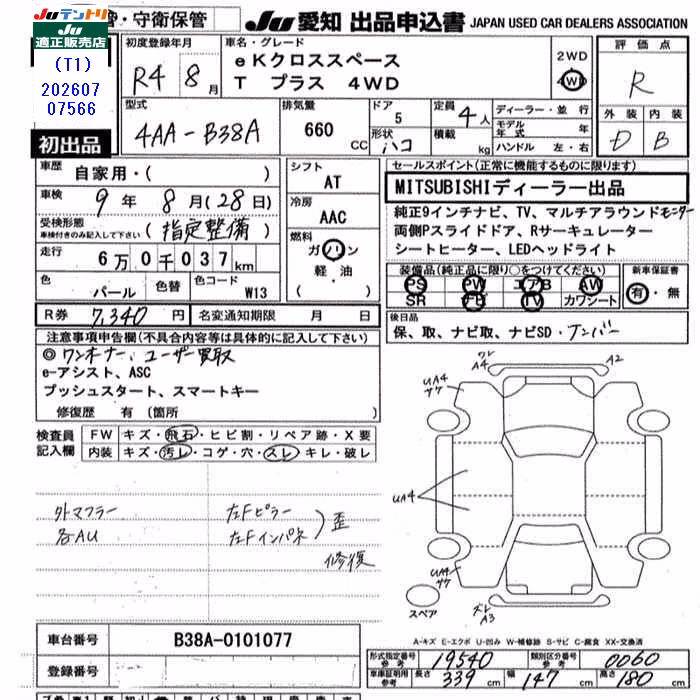 JUテントリ
適正販売店
(T1)
202607
07566
初出品
・守衛保管
JU 愛知 出品申込書 JAPAN USED CAR DEALERS ASSOCIATION
初度登録年月
R4 8月
車名・グレード
eKクロススペース
T プラス 4WD
2WD
4WD
評価点
R
外装 内装
D B
型式
4AA-B38A
排気量
660 CC
ドア
5
形状
ハコ
定員
4人
積載
kg
ディーラー・並行
モデル年式 年
ハンドル 左・右
車歴
自家用・( )
車検
9年 8月(28日)
受検形態
車検付きのみ記入して下さい
(指定整備)
走行
6万0千037km
色
パール
色替
色コード
W13
シフト
AT
冷房
AAC
燃料
ガソリン
軽・油
( )
セールスポイント(正常に機能するものに限ります)
MITSUBISHIディーラー出品
純正9インチナビ、TV、マルチアラウンドモニター
両側Pスライドドア、Rサーキュレーター
シートヒーター、LEDヘッドライト
装備品(純正品に限り○をつけてください)
PS PW エアB AW
SR ナビ TV カワシート
新車保証書
有・無
R券 7,340円
名変通知期限 月 日
後日品
保、取、ナビ取、ナビSD・ナンバー
注意事項申告欄(不具合内容等は具体的に記入して下さい)
◎ワンオーナー、ユーザー買取
e-アシスト、ASC
プッシュスタート、スマートキー
修復歴 有(箇所
検査員
記入欄
FW キズ・飛石・ヒビ割・リペア跡・X要
内装 キズ・汚レ・コゲ・穴・スレ・キレ・破レ
外マフラー
各AU
左Fピラー
左Fインパネ
歪
修復
UA4
サケ
ワレ
A4
A2
UA4
UA4
サケ
ズレ
A3
スペア
A-キズ E-エクボ U-凹み W-補修跡 S-サビ C-腐食 XX-交換済
車台番号
B38A-0101077
登録番号
形式指定番号
参考
19540
類別区分番号
参考
0060
車庫証明用
参考
長さ 339cm 幅 147cm 高さ 180cm